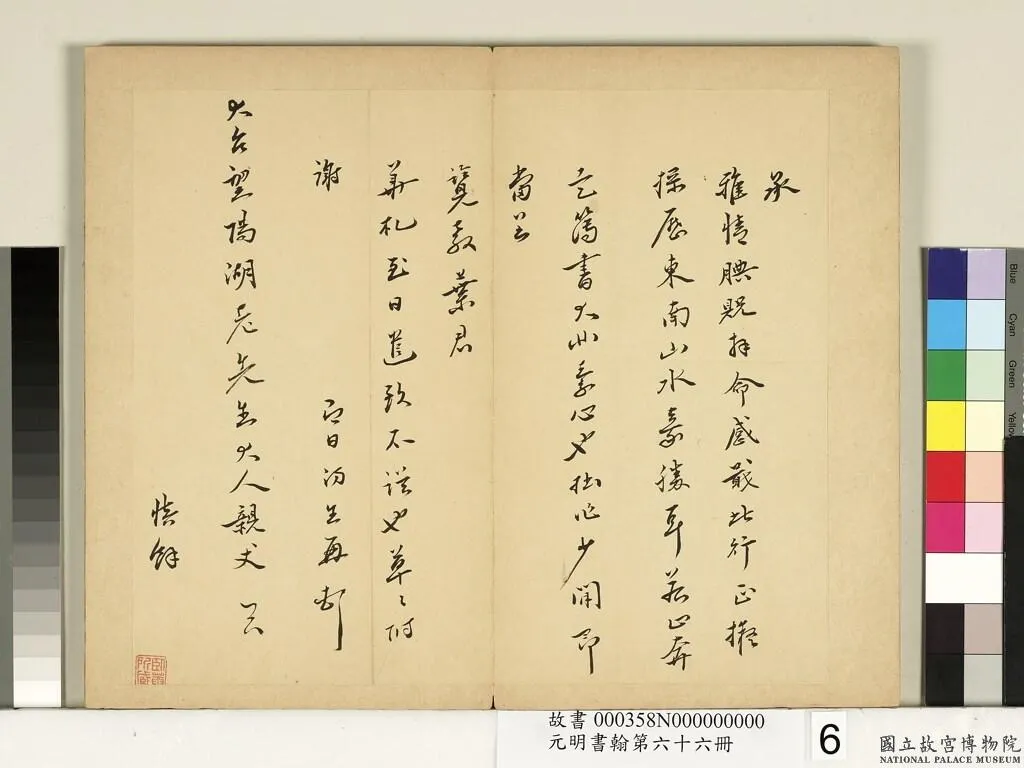 承
雅情腆貺拜命感戢此行正擬
探歷東南山水豪勝耳若止奔
走簿書大非素心也拙作少閒即
當呈
覽敎葉君
華札至日進致不誤也草々附
謝
即日汤生再頓
大台望陽湖老先生大人親丈
慎餘
故書 000358N000000000
元明書翰第六十六冊
6
國立故宮博物院
NATIONAL PALACE MUSEUM
Blue
Cyan
Green
Yellow